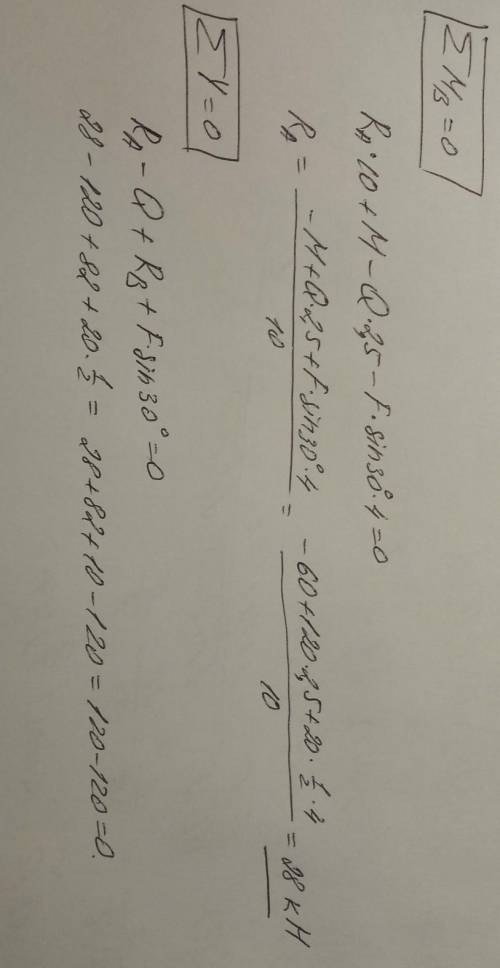 ΣM_B = 0
R_A·10 + M − Q·2,5 − F·sin30°·4 = 0
R_A = (−M + Q·2,5 + F·sin30°·4)/10 = (−60 + 120·2,5 + 20·1/2·4)/10 = 28 кН
ΣY = 0
R_A − Q + R_B + F·sin30° = 0
28 − 120 + 82 + 20·1/2 = 28 + 82 + 10 − 120 = 120 − 120 = 0.